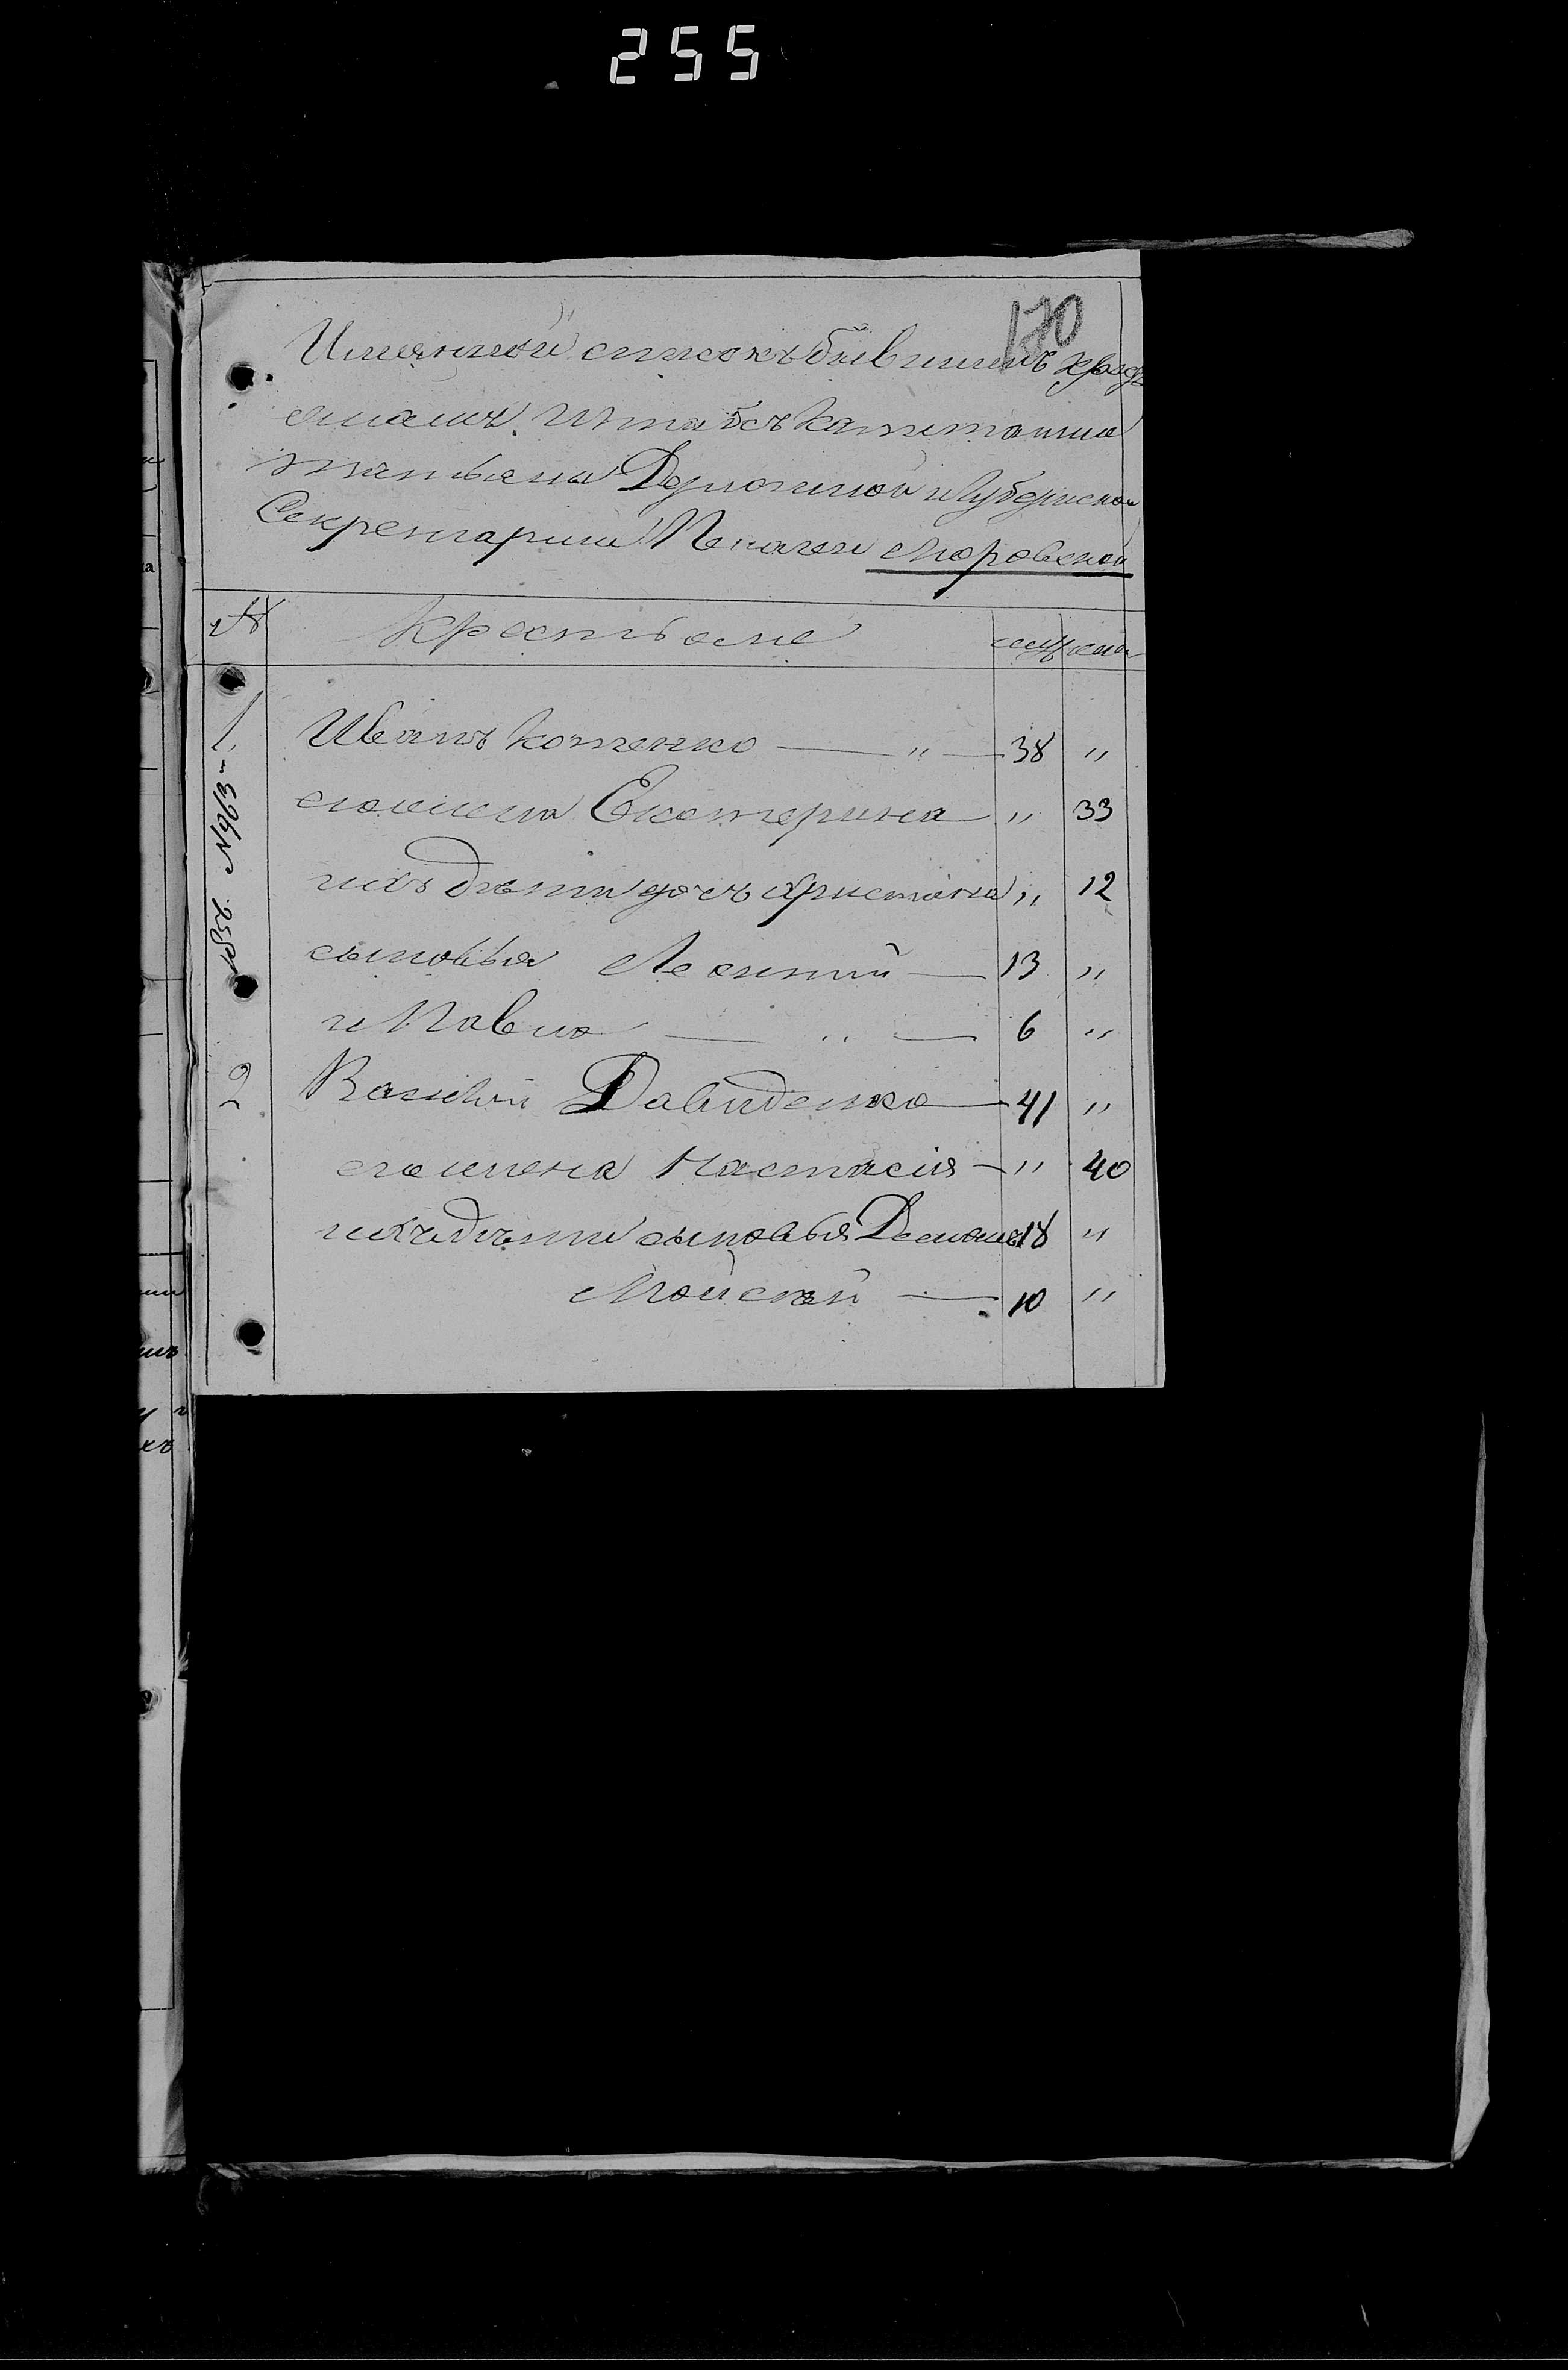 255
170
Именной списокъ бывшимъ крестъ
янамъ Штабсъ Капитанши
Татьяны и Губернской
Секретарши Пелагеи Моровской
№ Крестьяне
1 Иванъ Котенко — " — 38 "
его жена Екатерина " 33
ихъ дети дочъ Христина " 12
сыновья Леонтий — 13 "
и Павло — " — 6 "
2 Василий Давиденко — 41 "
его жена Настасия — " 40
ихъ дети сыновья Демьянъ 18 "
Мойсей — 10 "
1856 N963